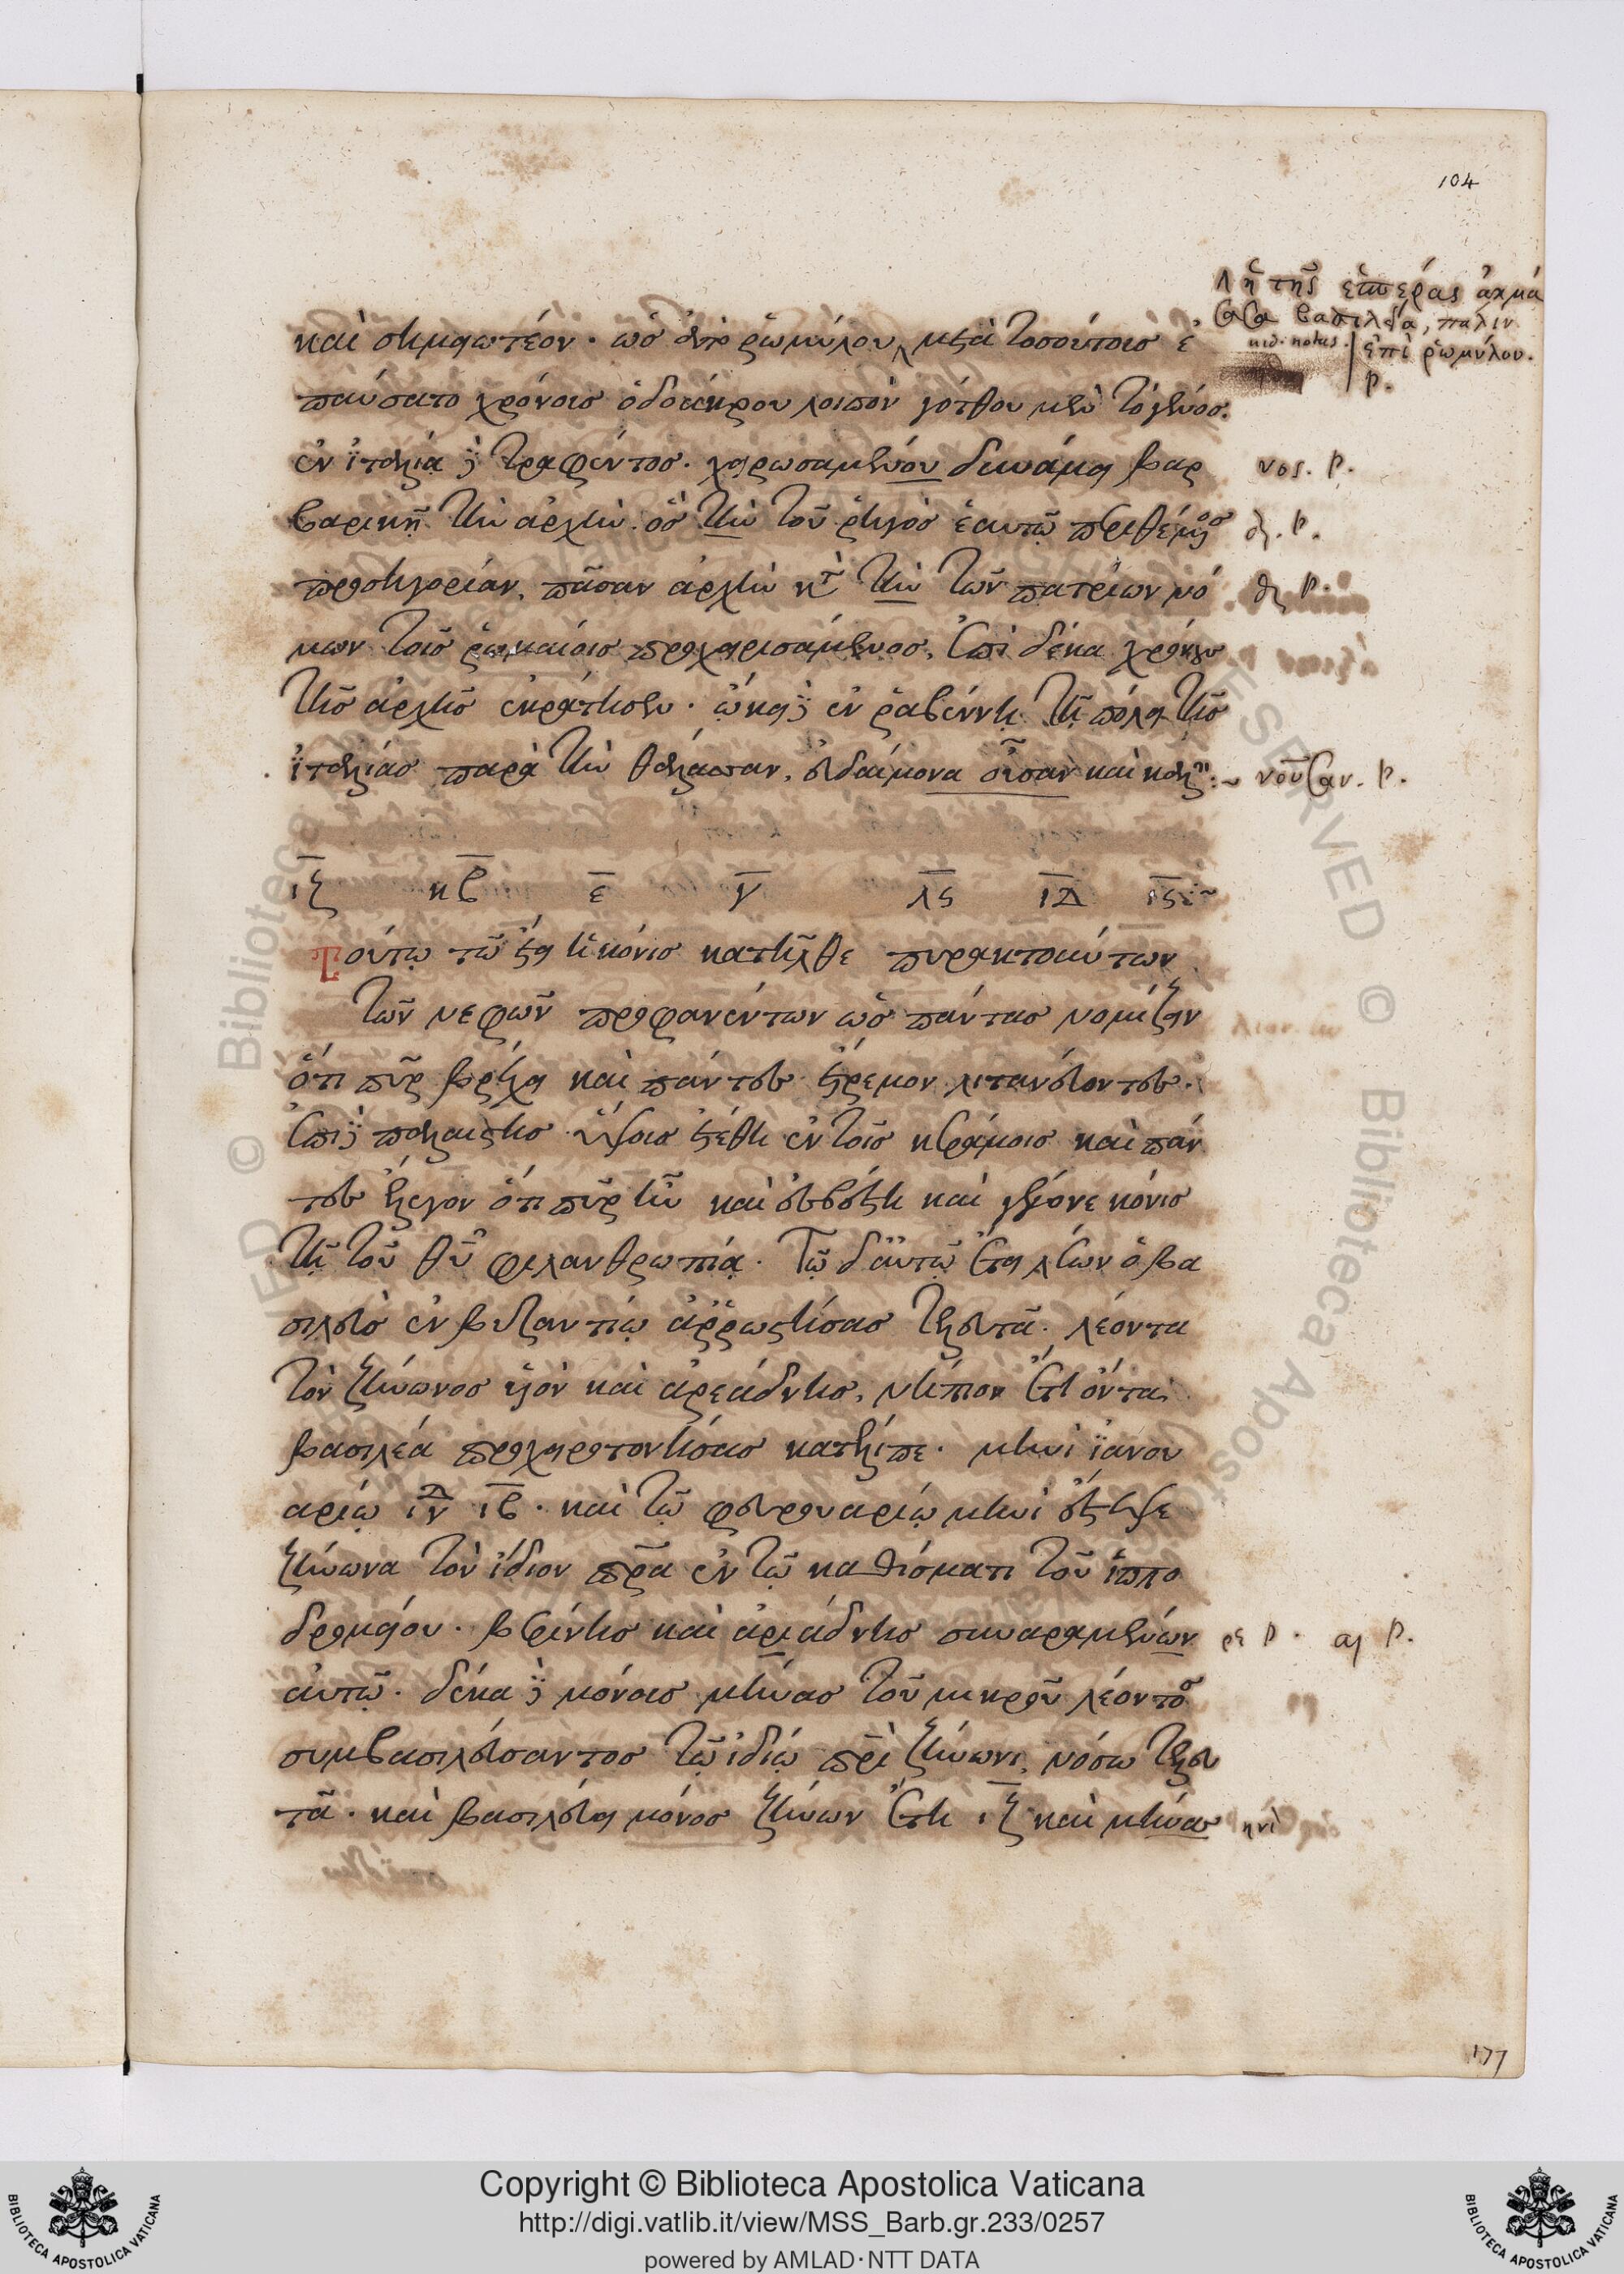 104
ἡ τῆς ἑσπέρας ἀκμά
σασα βασιλεία, πάλιν
nid. notus. ἐπὶ ῥωμύλου.
p.
καὶ σημειωτέον. ὡς ἀπὸ ῥωμύλου μετὰ τοσούτοις ἐ
παύσατο χρόνοις ὀδοάκρου λοιπὸν γότθου μὲν τὸ γένος.
ἐν ἰταλίᾳ δὲ τραφέντος. χειρωσαμένου δυνάμει βαρ νος. p.
βαρικῇ τὴν ἀρχήν. ὃς τὴν τοῦ ῥηγὸς ἑαυτῷ περιθέμενος p.
προσηγορίαν, πᾶσαν ἀρχὴν κατὰ τὴν τῶν πατρίων νό p.
μων τοῖς ῥωμαίοις προχειρισάμενος, ἐπὶ δέκα χρόνοις
τῆς ἀρχῆς ἐκράτησεν. ᾤκει δὲ ἐν ῥαβέννῃ τῇ πόλει τῆς
ἰταλίας παρὰ τὴν θάλασσαν, εὐδαίμονα οὖσαν καὶ καλήν:~ νοῦσαν. p.
ιζ κβ ε γ λς ιδ ις:~
Τούτῳ τῷ ἔτει ἡ κόνις κατῆλθε πυρακτούντων
τῶν νεφῶν προφανέντων ὡς πάντας νομίζειν
ὅτι πῦρ βρέχει καὶ πάντες ἔτρεμον λιτανεύοντες.
ἐπὶ δὲ παλαιστῆς ὕψοις ἐτέθη ἐν τοῖς κεράμοις καὶ πάν
τες ἔλεγον ὅτι πῦρ ἦν καὶ ἐσβέσθη καὶ γέγονε κόνις
τῇ τοῦ θῦ φιλανθρωπίᾳ. Τῷ δ᾽ αὐτῷ ἔτει λέων ὁ βα
σιλεὺς ἐν βυζαντίῳ ἀῤῥωστήσας τελευτᾷ. λέοντα
τὸν ζήνωνος υἱὸν καὶ ἀρεάδνης, νήπιον ἔτι ὄντα,
βασιλέα προχειροτονήσας κατέλιπε. μηνὶ ἰανου
αρίῳ ἰνδ ιβ. καὶ τῷ φευρουαρίῳ μηνὶ ἔστεψε
ζήνωνα τὸν ἴδιον πρα ἐν τῷ καθίσματι τοῦ ἱππο
δρομείου. βερίνης καὶ ἀριάδνης συναραμένων ρε p. αι p.
αὐτῷ. δέκα δὲ μόνοις μῆνας τοῦ μικροῦ λέοντος
συμβασιλεύσαντος τῷ ἰδίῳ πρὶ ζήνωνι, νόσῳ τελευ
τᾷ. καὶ βασιλεύει μόνος ζήνων ἔτη ιζ καὶ μῆνας ηνὶ
177
Copyright © Biblioteca Apostolica Vaticana
http://digi.vatlib.it/view/MSS_Barb.gr.233/0257
powered by AMLAD·NTT DATA